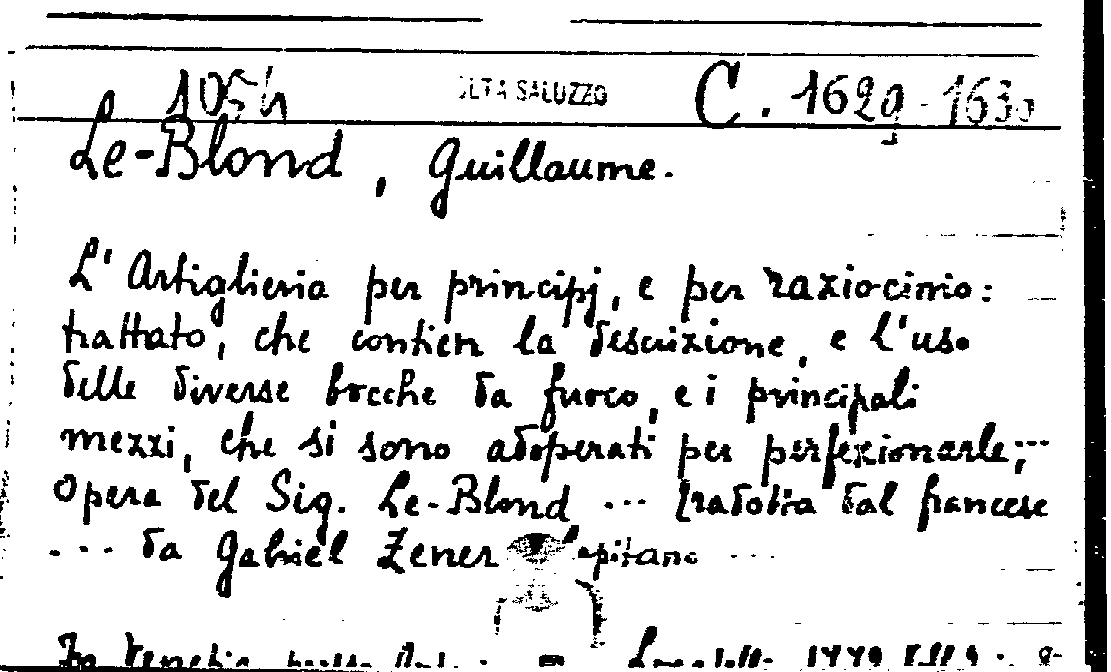 105h SALUZZO C. 1629-1630
Le-Blond, Guillaume.
L'Artiglieria per principj, e per raziocinio:
trattato, che contien la descrizione, e l'uso
delle diverse bocche da fuoco, e i principali
mezzi, che si sono adoperati per perfezionarle;...
Opera del Sig. Le-Blond ... tradotta dal francese
... da Gabriel Zener Capitano ...
In Venezia